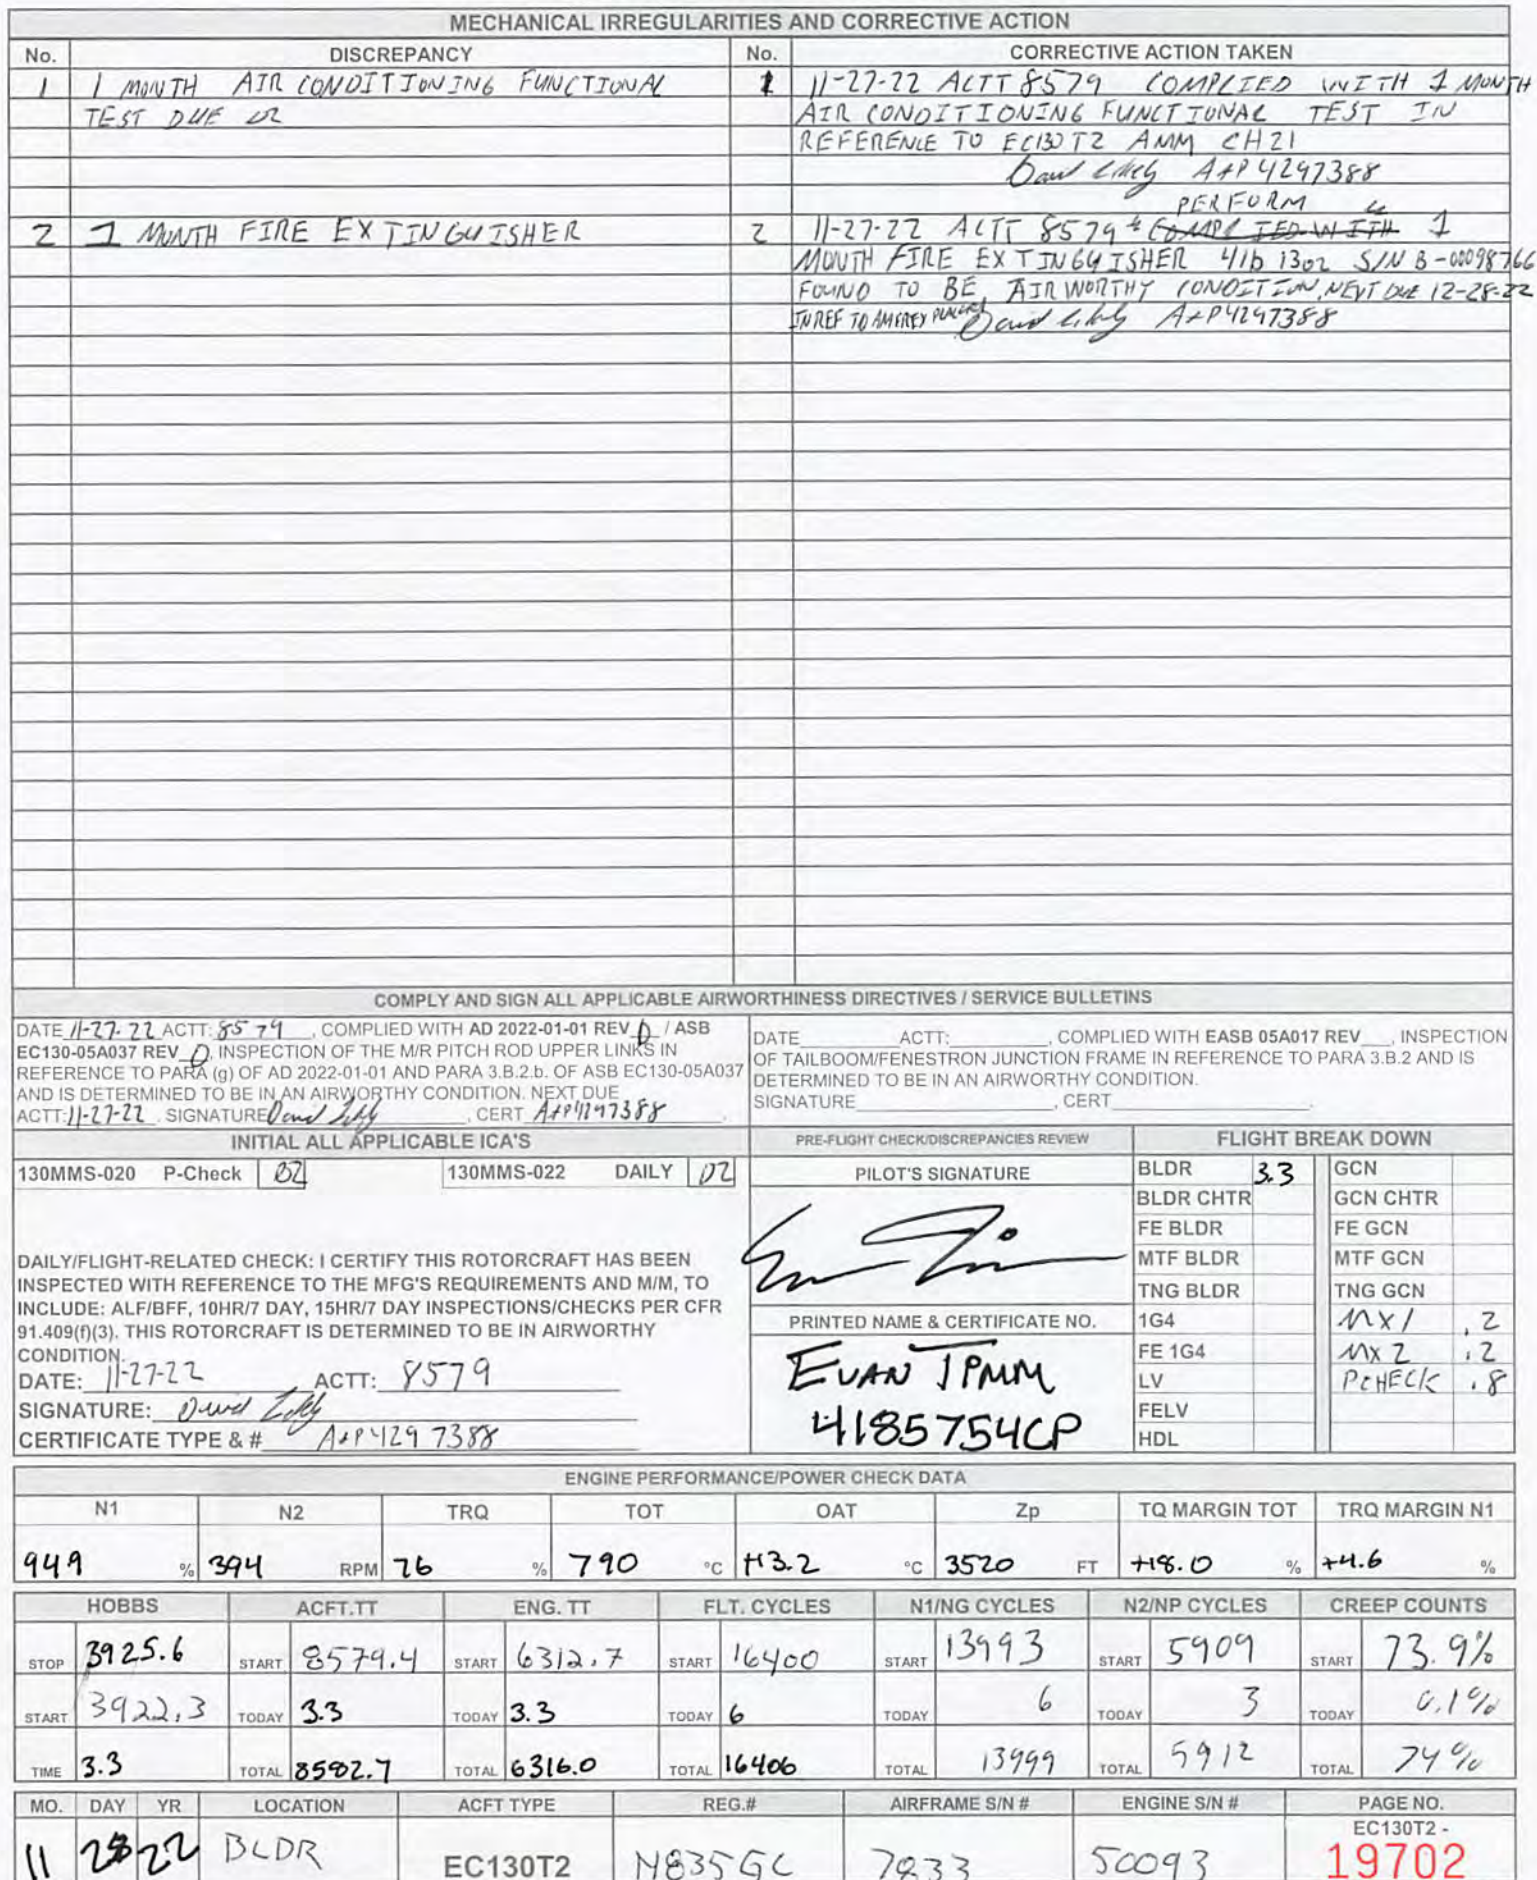 MECHANICAL IRREGULARITIES AND CORRECTIVE ACTION
No. DISCREPANCY No. CORRECTIVE ACTION TAKEN
1 1 MONTH AIR CONDITIONING FUNCTIONAL
TEST DUE
1 11-27-22 ACTT 8579 COMPLIED WITH 1 MONTH
AIR CONDITIONING FUNCTIONAL TEST IN
REFERENCE TO EC130T2 AMM CH21
A+P 4297388
2 1 MONTH FIRE EXTINGUISHER
PERFORM
2 11-27-22 ACTT 8579 COMPLIED WITH 1
MONTH FIRE EXTINGUISHER 41b 1302 S/N B-00098766
FOUND TO BE AIRWORTHY CONDITION, NEXT DUE 12-28-22
IN REF TO A+P4297388
COMPLY AND SIGN ALL APPLICABLE AIRWORTHINESS DIRECTIVES / SERVICE BULLETINS
DATE 11-27-22 ACTT: 8579, COMPLIED WITH AD 2022-01-01 REV 0 / ASB
EC130-05A037 REV 0, INSPECTION OF THE M/R PITCH ROD UPPER LINKS IN
REFERENCE TO PARA (g) OF AD 2022-01-01 AND PARA 3.B.2.b. OF ASB EC130-05A037
AND IS DETERMINED TO BE IN AN AIRWORTHY CONDITION. NEXT DUE
ACTT: 11-27-22. SIGNATURE , CERT A+P4297388.
DATE ACTT: , COMPLIED WITH EASB 05A017 REV , INSPECTION
OF TAILBOOM/FENESTRON JUNCTION FRAME IN REFERENCE TO PARA 3.B.2 AND IS
DETERMINED TO BE IN AN AIRWORTHY CONDITION.
SIGNATURE , CERT .
INITIAL ALL APPLICABLE ICA'S
130MMS-020 P-Check DZ 130MMS-022 DAILY DZ
DAILY/FLIGHT-RELATED CHECK: I CERTIFY THIS ROTORCRAFT HAS BEEN
INSPECTED WITH REFERENCE TO THE MFG'S REQUIREMENTS AND M/M, TO
INCLUDE: ALF/BFF, 10HR/7 DAY, 15HR/7 DAY INSPECTIONS/CHECKS PER CFR
91.409(f)(3). THIS ROTORCRAFT IS DETERMINED TO BE IN AIRWORTHY
CONDITION.
DATE: 11-27-22 ACTT: 8579
SIGNATURE:
CERTIFICATE TYPE & # A+P 4297388
PRE-FLIGHT CHECK/DISCREPANCIES REVIEW
PILOT'S SIGNATURE
PRINTED NAME & CERTIFICATE NO.
EVAN
4185754CP
FLIGHT BREAK DOWN
BLDR 3.3 GCN
BLDR CHTR GCN CHTR
FE BLDR FE GCN
MTF BLDR MTF GCN
TNG BLDR TNG GCN
1G4 MX1 .2
FE 1G4 MX2 .2
LV PCHECK .8
FELV
HDL
ENGINE PERFORMANCE/POWER CHECK DATA
N1 N2 TRQ TOT OAT Zp TQ MARGIN TOT TRQ MARGIN N1
949 % 394 RPM 76 % 790 °C +13.2 °C 3520 FT +18.0 % +4.6 %
HOBBS ACFT.TT ENG. TT FLT. CYCLES N1/NG CYCLES N2/NP CYCLES CREEP COUNTS
STOP 3925.6 START 8579.4 START 6312.7 START 16400 START 13993 START 5909 START 73.9%
START 3922.3 TODAY 3.3 TODAY 3.3 TODAY 6 TODAY 6 TODAY 3 TODAY 0.1%
TIME 3.3 TOTAL 8582.7 TOTAL 6316.0 TOTAL 16406 TOTAL 13999 TOTAL 5912 TOTAL 74%
MO. DAY YR LOCATION ACFT TYPE REG.# AIRFRAME S/N # ENGINE S/N # PAGE NO.
11 28 22 BLDR EC130T2 N835GC 7833 50093 EC130T2 -
19702